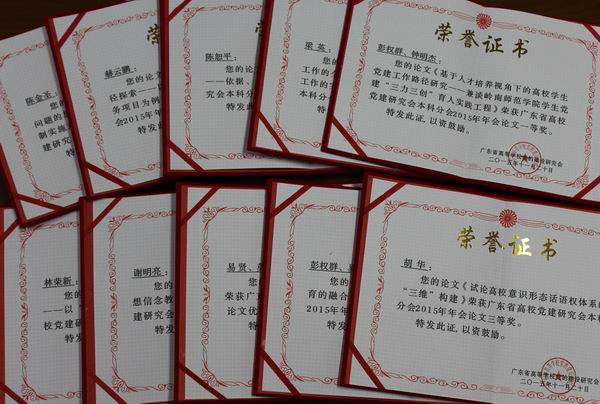 陈金圣：
您的
问题的
制实施
建研究
特
赫云鹏：
您的论
径探索
务项目为例
会2015年年
特发
荣
陈恕平：
您的
——依据、
究会本科分
特发
荣
梁英：
您
工作的
工作为
本科分会
特
荣誉证书
彭权群、钟明杰：
您的论文《基于人才培养视角下的高校学生
党建工作路径研究——兼谈岭南师范学院学生党
建“三力三创”育人实践工程》荣获广东省高校
党建研究会本科分会2015年年会论文一等奖。
特发此证，以资鼓励。
广东省高等学校党的建设研究会
二〇一五年十一月二十日
林荣新：
您
——以
校党建研
谢明亮：
您
想信念教
建研究会
易贤、
您的
荣获广东
论文优
彭权群、
您的
育的融合
2015年年
荣誉证书
胡华：
您的论文《试论高校意识形态话语权体系的
“三维”构建》荣获广东省高校党建研究会本科
分会2015年年会论文三等奖。
特发此证，以资鼓励。
广东省高等学校党的建设研究会
二〇一五年十一月二十日